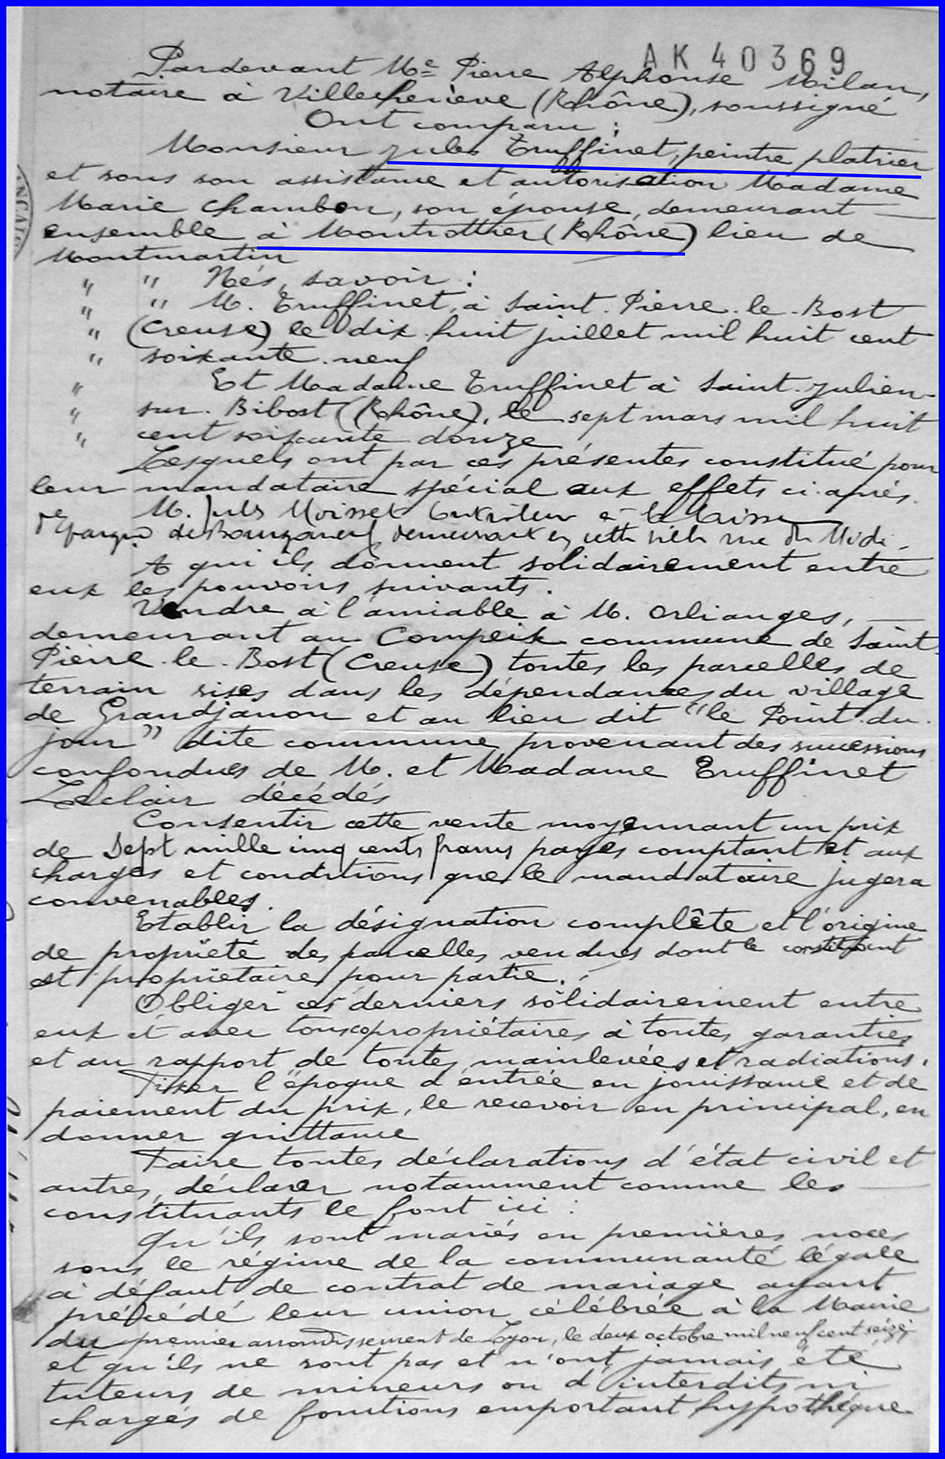 AK 40369
Pardevant Me Pierre Alphonse Milan,
notaire à Villechenève (Rhône), soussigné
Ont comparu :
Monsieur Jules Truffinet, peintre platrier
et sous son assistance et autorisation Madame
Marie Chambon, son épouse, demeurant
ensemble à Montrottier (Rhône) lieu de
Montmartin
" " Nés, savoir :
" " M. Truffinet, à Saint-Pierre-le-Bost
" (Creuse) le dix-huit juillet mil huit cent
" soixante-neuf
" Et Madame Truffinet à Saint-Julien-
" sur-Bibost (Rhône), le sept mars mil huit
" cent soixante douze
Lesquels ont par ces présentes constitué pour
leur mandataire spécial aux effets ci-après.
M. Jules Moisset à la Caisse
d'Epargne de Bourganeuf, demeurant en cette ville rue du
A qui ils donnent solidairement entre
eux les pouvoirs suivants.
Vendre à l'amiable à M. Orlianges,
demeurant au Compeix commune de Saint-
Pierre-le-Bost (Creuse) toutes les parcelles de
terrain sises dans les dépendances du village
de Grandjanon et au lieu dit "le Point du
jour" dite commune provenant des successions
confondues de M. et Madame Truffinet
Leclair décédés
Consentir cette vente moyennant un prix
de Sept mille cinq cents francs payés comptant et aux
charges et conditions que le mandataire jugera
convenables.
Etablir la désignation complète et l'origine
de propriété des parcelles vendues dont le constituant
est propriétaire pour partie.
Obliger ces derniers solidairement entre
eux et avec tous copropriétaires à toutes garanties
et au rapport de toutes mainlevées et radiations.
Fixer l'époque d'entrée en jouissance et de
paiement du prix, le recevoir en principal, en
donner quittance
Faire toutes déclarations d'état civil et
autres, déclarer notamment comme les
constituants le font ici :
Qu'ils sont mariés en premières noces
sous le régime de la communauté légale
à défaut de contrat de mariage ayant
précédé leur union célébrée à la Mairie
du premier arrondissement de Lyon, le deux octobre mil neuf cent seize;
et qu'ils ne sont pas et n'ont jamais été
tuteurs de mineurs ou d'interdits ni
chargés de fonctions emportant hypothèque